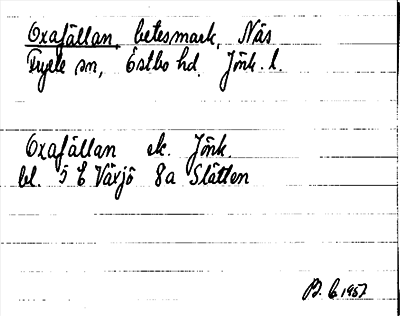 Oxafällan, betesmark, Näs
Fryele sn, Östbo hd. Jönk. l.
Oxafällan ek. Jönk.
bl. 5 E Växjö 8a Slätten
B. E 1957